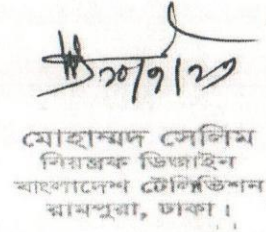 ২০/৭/২৩
মোহাম্মদ সেলিম
নিয়ন্ত্রক ডিজাইন
বাংলাদেশ টেলিভিশন
রামপুরা, ঢাকা।